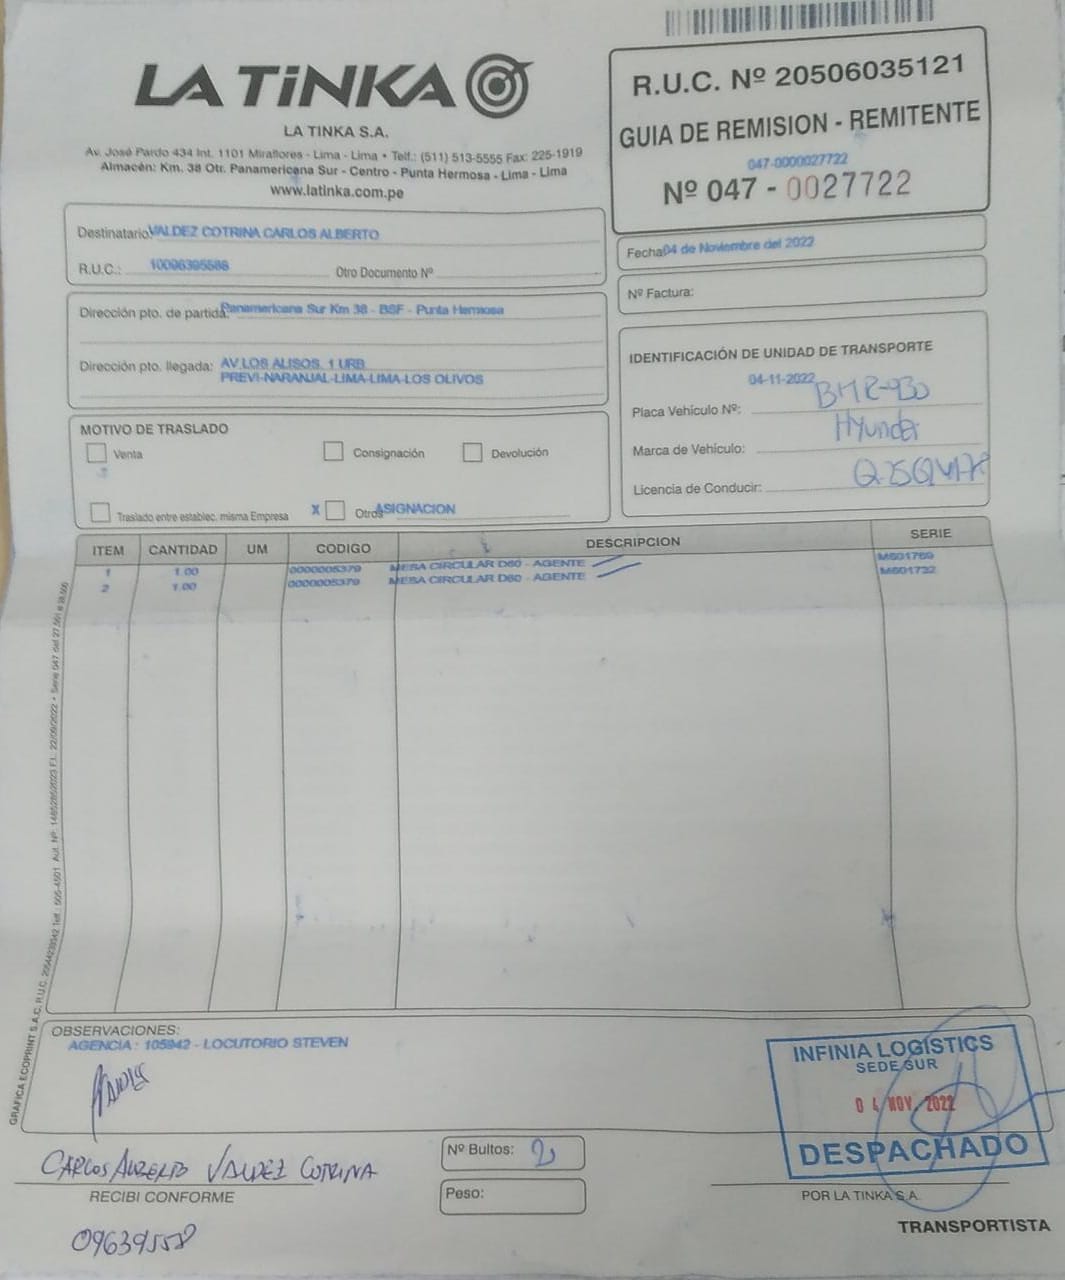 LA TiNKA
LA TINKA S.A.
Av. José Pardo 434 Int. 1101 Miraflores - Lima - Lima • Telf.: (511) 513-5555 Fax: 225-1919
Almacén: Km. 38 Otr. Panamericana Sur - Centro - Punta Hermosa - Lima - Lima
www.latinka.com.pe
R.U.C. Nº 20506035121
GUIA DE REMISION - REMITENTE
047-0000027722
Nº 047 - 0027722
Destinatario: VALDEZ COTRINA CARLOS ALBERTO
R.U.C.: 10096395588 Otro Documento Nº
Fecha: 04 de Noviembre del 2022
Nº Factura:
Dirección pto. de partida: Panamericana Sur Km 38 - BSF - Punta Hermosa
Dirección pto. llegada: AV LOS ALISOS. 1 URB.
PREVI-NARANJAL-LIMA-LIMA-LOS OLIVOS
IDENTIFICACIÓN DE UNIDAD DE TRANSPORTE
04-11-2022
Placa Vehículo Nº: BMR-930
Marca de Vehículo: Hyundai
Licencia de Conducir:
MOTIVO DE TRASLADO
Venta Consignación Devolución
Traslado entre establec. misma Empresa X Otros ASIGNACION
ITEM CANTIDAD UM CODIGO DESCRIPCION SERIE
1 1.00 0000005379 MESA CIRCULAR D60 - AGENTE MS01769
2 1.00 0000005379 MESA CIRCULAR D60 - AGENTE MS01732
OBSERVACIONES:
AGENCIA : 105942 - LOCUTORIO STEVEN
INFINIA LOGISTICS
SEDE SUR
04 NOV. 2022
DESPACHADO
CARLOS ALBERTO VALDEZ COTRINA
RECIBI CONFORME
09639558
Nº Bultos: 2
Peso:
POR LA TINKA S.A.
TRANSPORTISTA